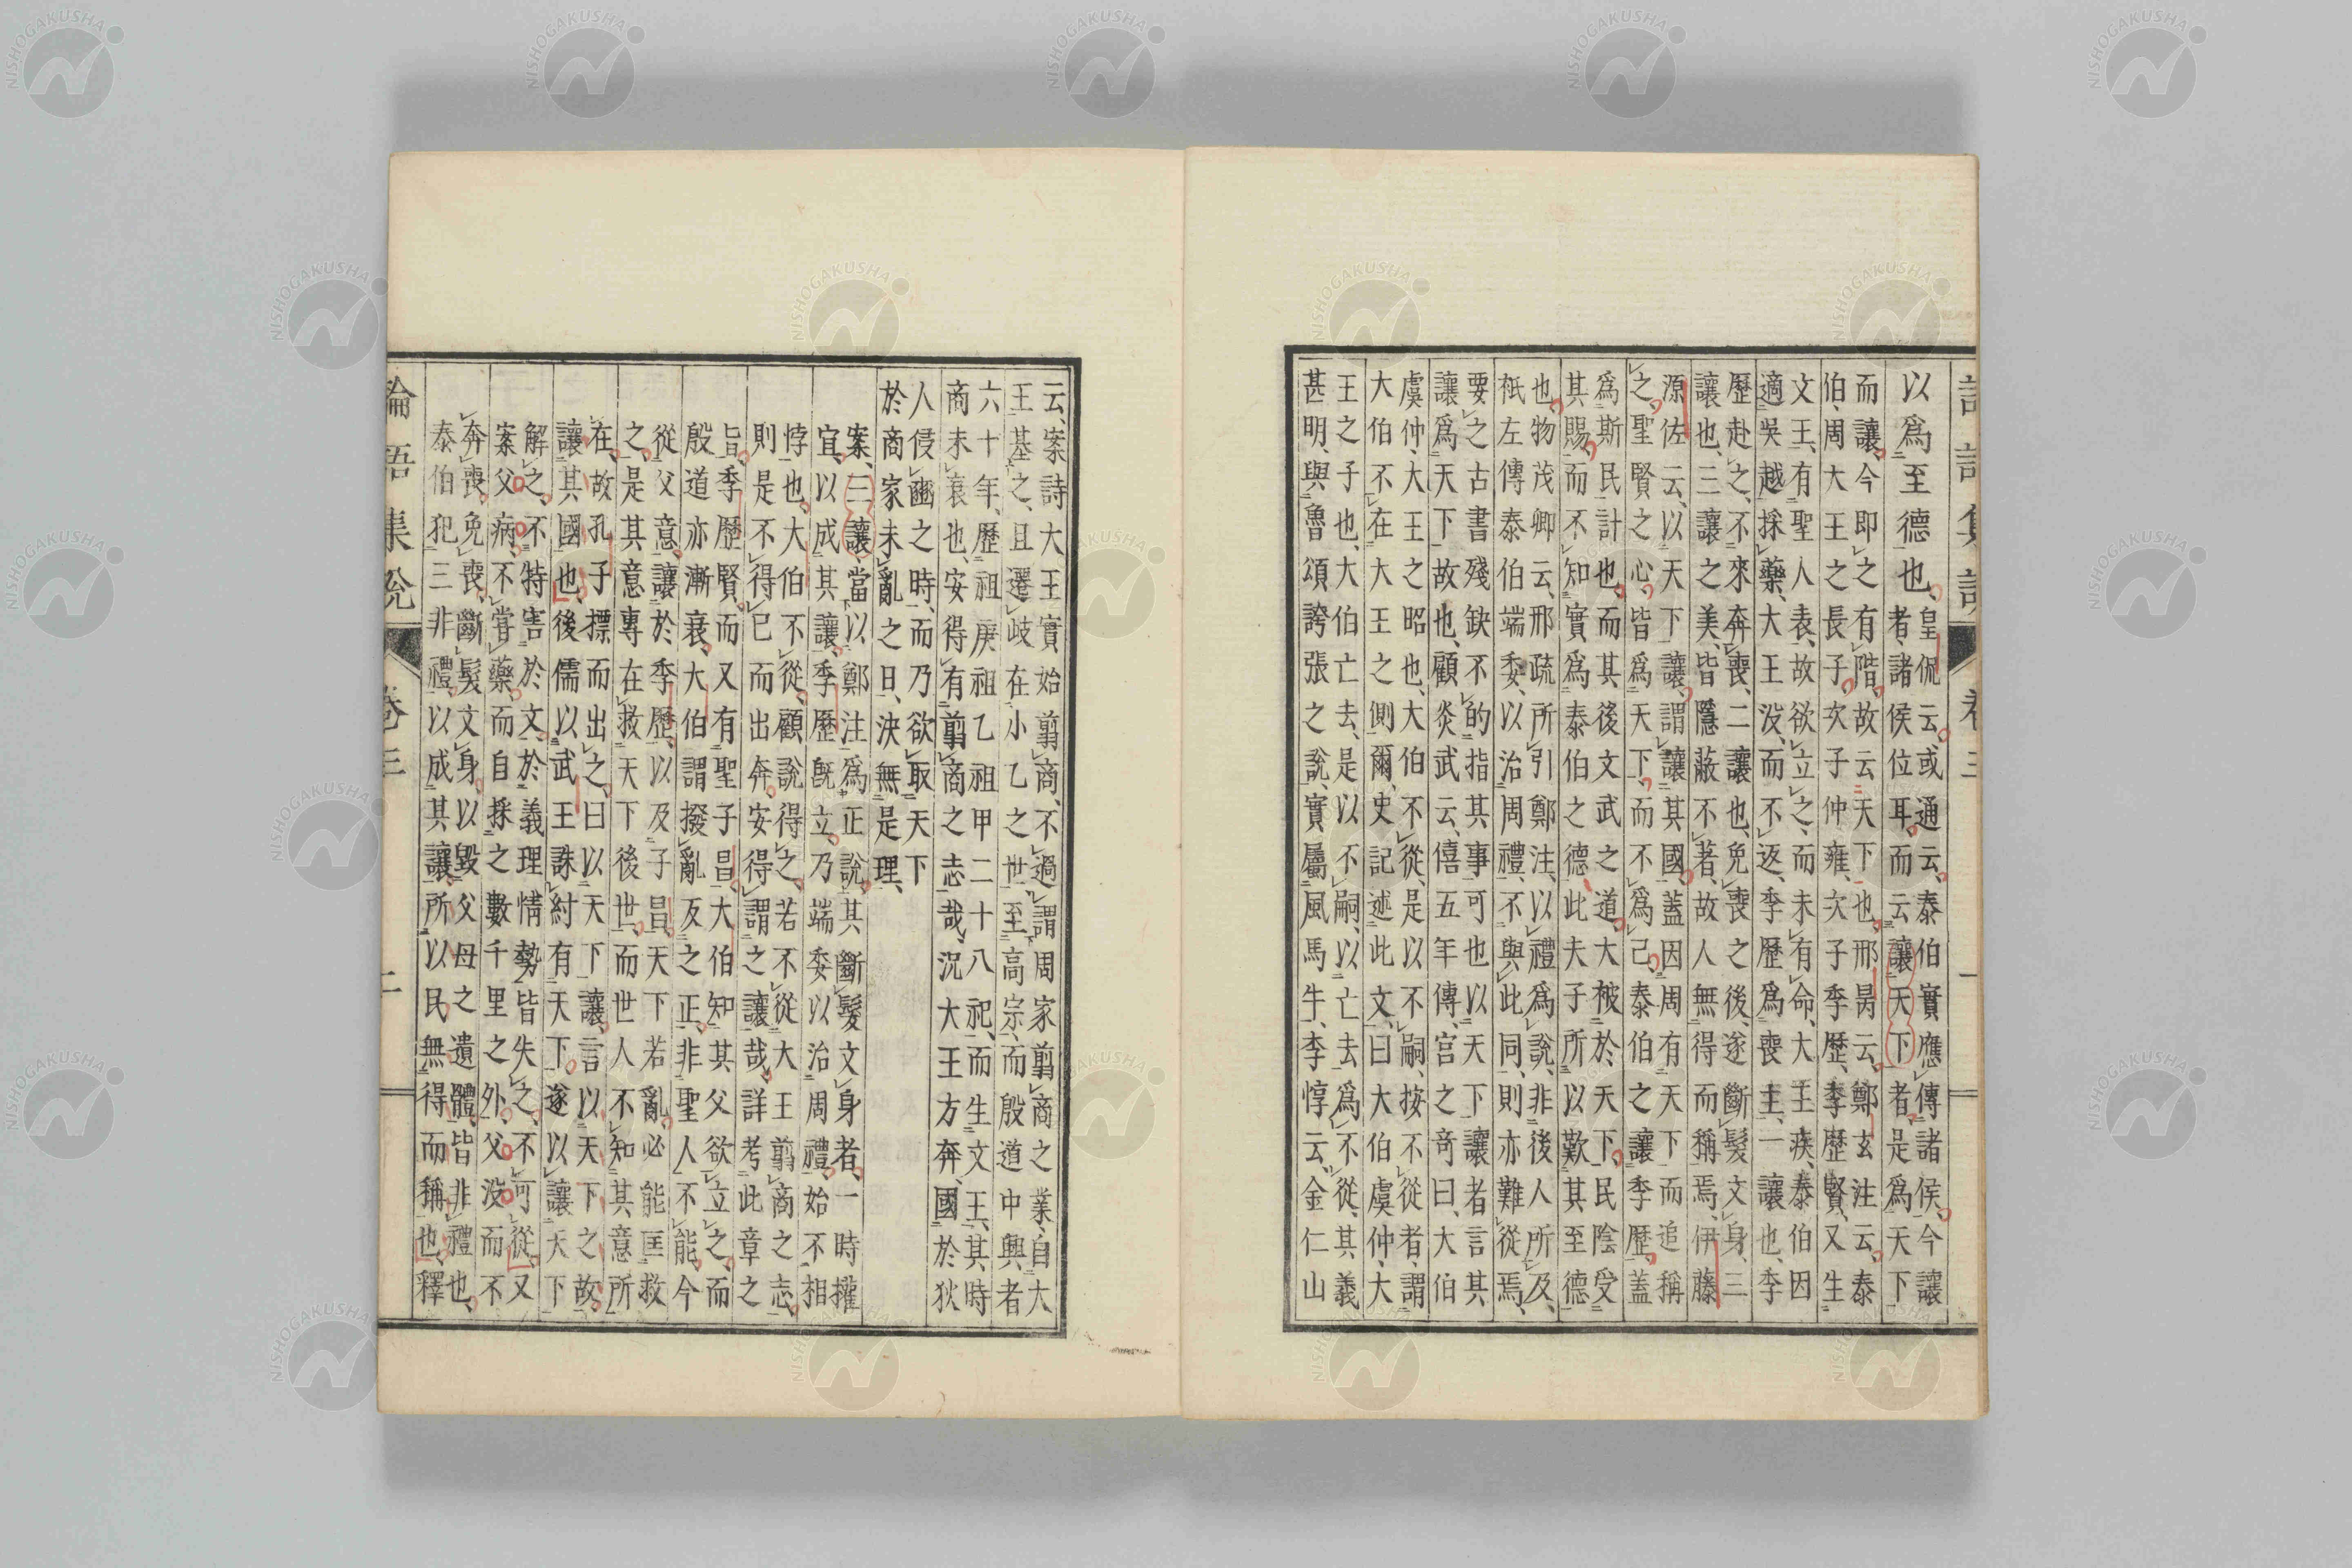 以爲至德也、
皇侃云、或通云、泰伯實應傳諸侯、今讓
者、諸侯位耳、而云讓天下者、是爲天下
而讓、今即之有階、故云天下也、邢昺云、鄭玄注云、泰
伯、周大王之長子、次子仲雍、次子季歷、季歷賢、又生
文王、有聖人表、故欲立之、而未有命、大王疾、泰伯因
適吳越採藥、大王沒而不返、季歷爲喪主、一讓也、季
歷赴之、不來奔喪、二讓也、免喪之後、遂斷髮文身、三
讓也、三讓之美、皆隱蔽不著、故人無得而稱焉、伊藤
源佐云、以天下讓、謂讓其國、蓋因周有天下而追稱
之、聖賢之心、皆爲天下、而不爲己、泰伯之讓季歷、蓋
爲斯民計也、而其後文武之道、大被於天下、民陰受
其賜、而不知實爲泰伯之德、此夫子所以歎其至德
也、物茂卿云、邢疏所引鄭注、以禮爲說、非後人所及、
秖左傳泰伯端委、以治周禮、不與此同、則亦難從焉、
要之古書殘缺不的指其事可也、以天下讓者、言其
讓爲天下故也、顧炎武云、僖五年傳、宮之奇曰、大伯
虞仲、大王之昭也、大伯不從、是以不嗣、按不從者、謂
大伯不在大王之側爾、史記述此文、曰大伯虞仲、大
王之子也、大伯亡去、是以不嗣、以亡去爲不從、其義
甚明、與魯頌誇張之說、實屬風馬牛、李惇云、金仁山
云、案詩大王實始翦商、不過謂周家翦商之業、自大
王基之、且遷岐在小乙之世、至高宗、而殷道中興者
六十年、歷祖庚祖甲二十八祀、而生文王、其時
商未衰也、安得有翦商之志哉、況大王方奔國於狄
人侵豳之時、而乃欲取天下
於商家未亂之日、決無是理、
案、三讓、當以鄭注爲正說、其斷髮文身者、一時權
宜、以成其讓、季歷旣立、乃端委以治周禮、始不相
悖也、大伯不從、顧說得之、若不從大王翦商之志、
則是不得已而出奔、安得謂之讓哉、詳考此章之
旨、季歷賢、而又有聖子昌、大伯知其父欲立之、而
殷道亦漸衰、大伯謂撥亂反之正、非聖人不能、今
從父意、讓於季歷、以及子昌、天下若亂、必能匡救
之、是其意專在救天下後世、而世人不知其意所
在、故孔子標而出之、曰以天下讓、言以天下之故、
讓其國也、後儒以武王誅紂有天下、遂以讓天下
解之、不特害於文、於義理情勢皆失之、不可從、又
案父病、不嘗藥、而自採之數千里之外、父沒而不
奔喪、免喪、斷髮文身、以毀父母之遺體、皆非禮也、
泰伯犯三非禮、以成其讓、所以民無得而稱也、釋
論語集說 卷三 二
NISHOGAKUSHA